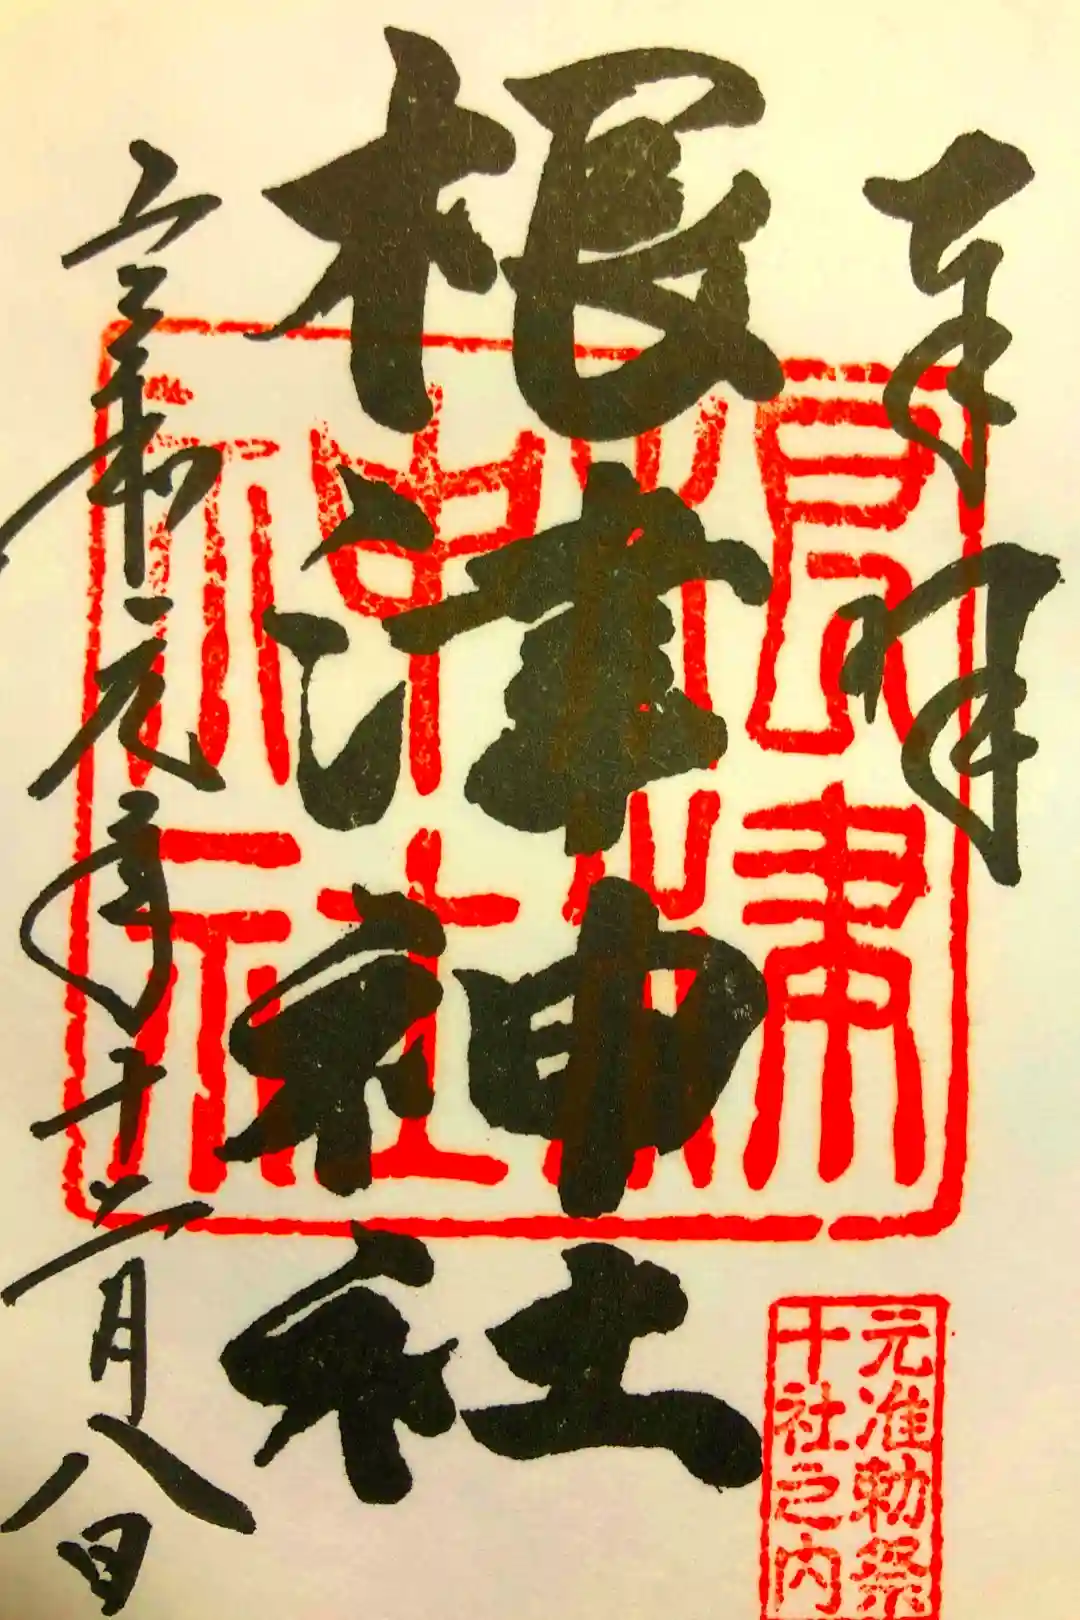 奉拝
根津神社
令和元年十二月八日
根津
神社
元准勅祭
十社之内